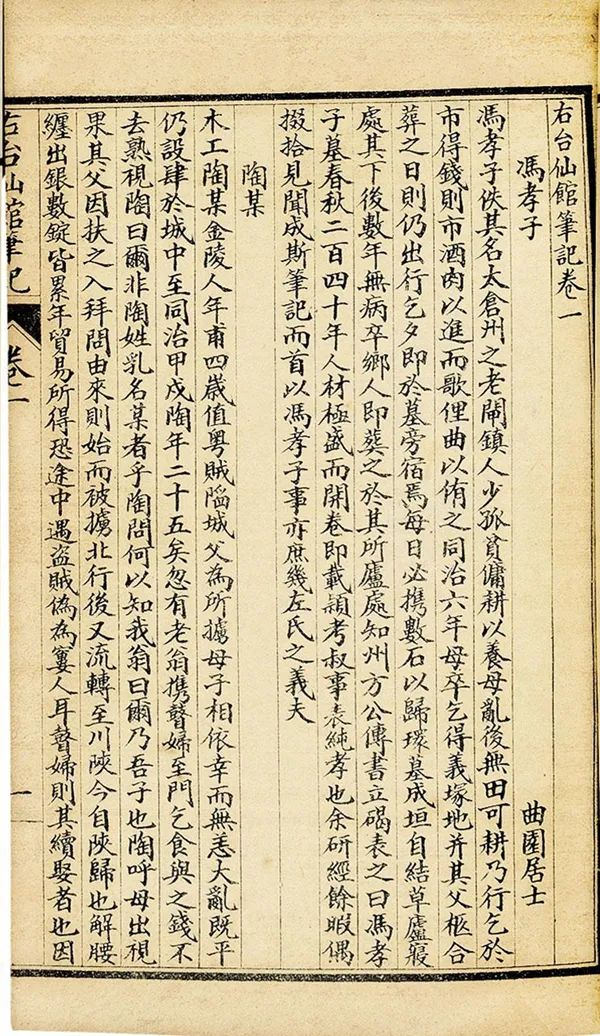 右台仙館筆記卷一
馮孝子　曲園居士
馮孝子佚其名太倉州之老閘鎮人少孤貧傭耕以養母亂後無田可耕乃行乞於
市得錢則市酒肉以進而歌俚曲以侑之同治六年母卒乞得義塚地并其父柩合
葬之日則仍出行乞夕即於墓旁宿焉每日必攜數石以歸環墓成垣自結草廬寢
處其下後數年無病卒鄉人即葬之於其所廬處知州方公傳書立碣表之曰馮孝
子墓春秋二百四十年人材極盛而開卷即載潁考叔事表純孝也余研經餘暇偶
掇拾見聞成斯筆記而首以馮孝子事亦庶幾左氏之義夫
陶某
木工陶某金陵人年甫四歲值粵賊陷城父為所擄母子相依幸而無恙大亂既平
仍設肆於城中至同治甲戌陶年二十五矣忽有老翁攜瞽婦至門乞食與之錢不
去熟視陶曰爾非陶姓乳名某者乎陶問何以知我翁曰爾乃吾子也陶呼母出視
果其父因扶之入拜問由來則始而被擄北行後又流轉至川陝今自陝歸也解腰
纏出銀數錠皆累年貿易所得恐途中遇盜賊偽為窶人耳瞽婦則其續娶者也因
右台仙館筆記　卷一　一